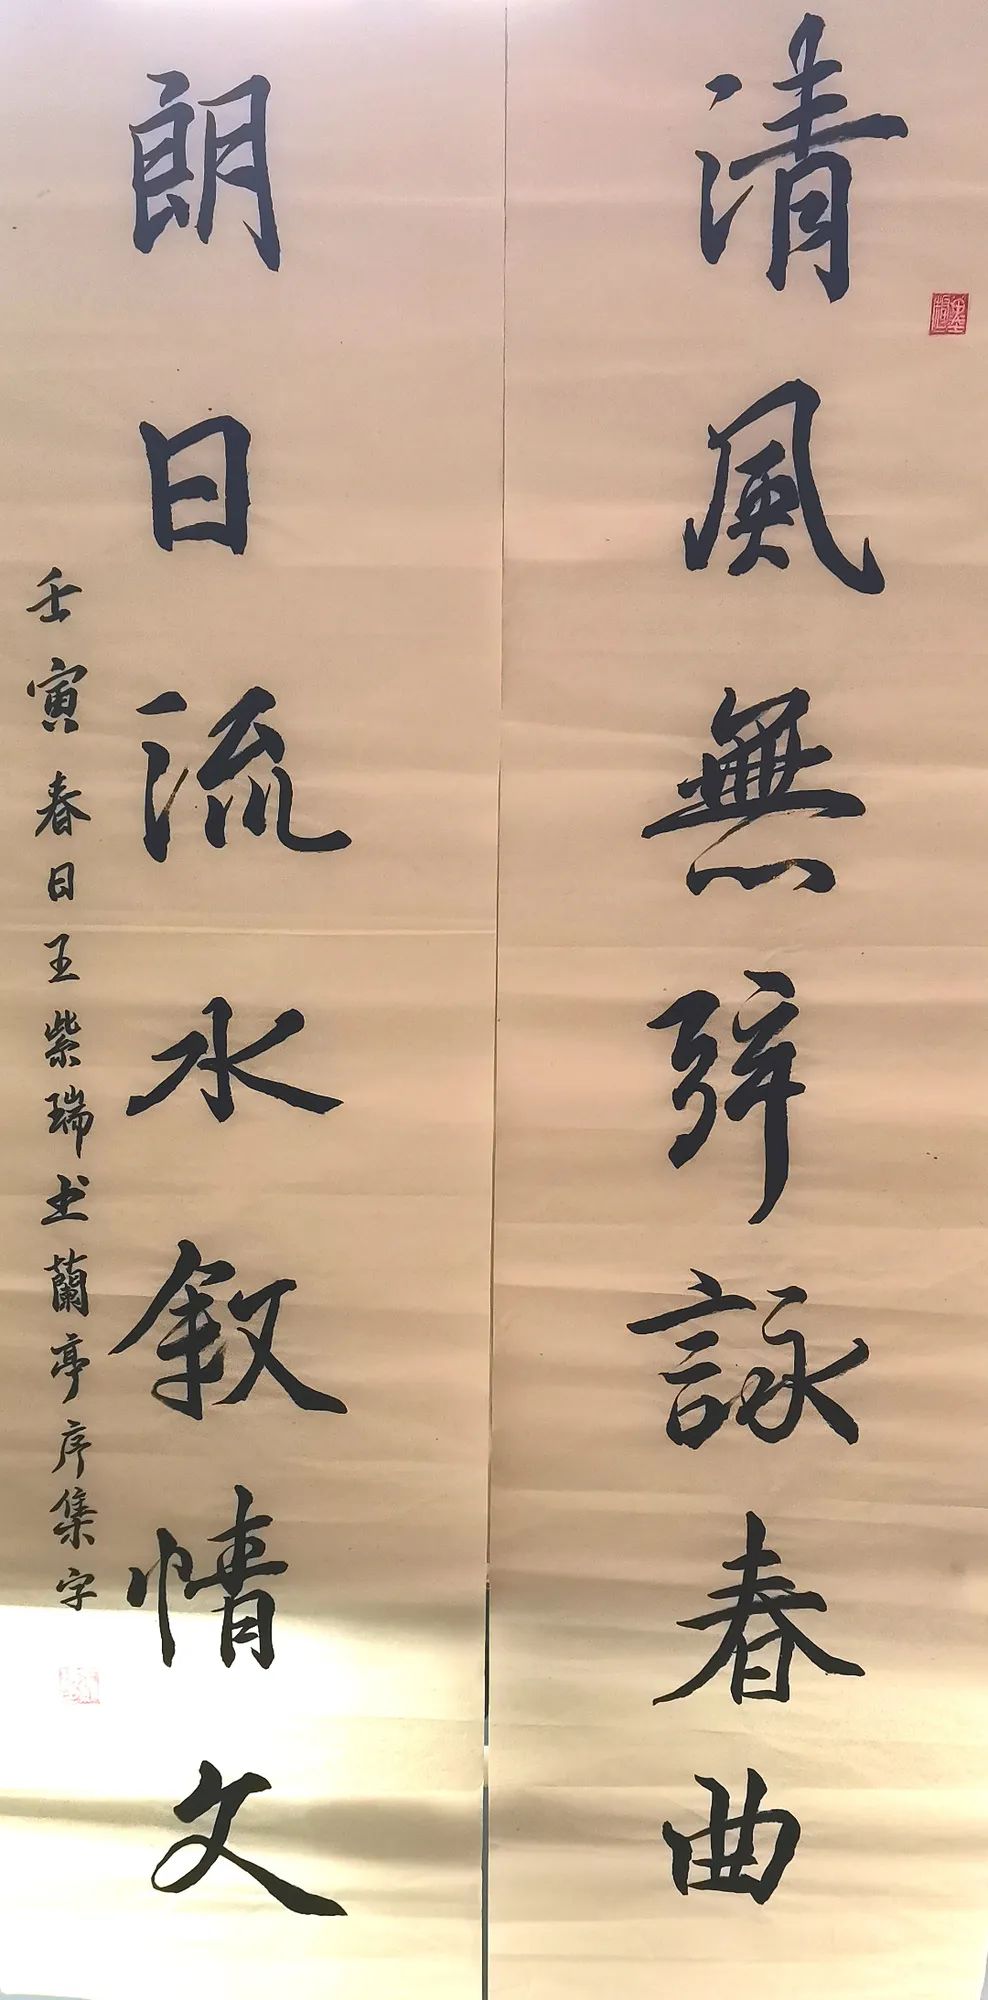 清風無詠春曲
朗日流水敘情文
壬寅春日王紫瑞书蘭亭序集字